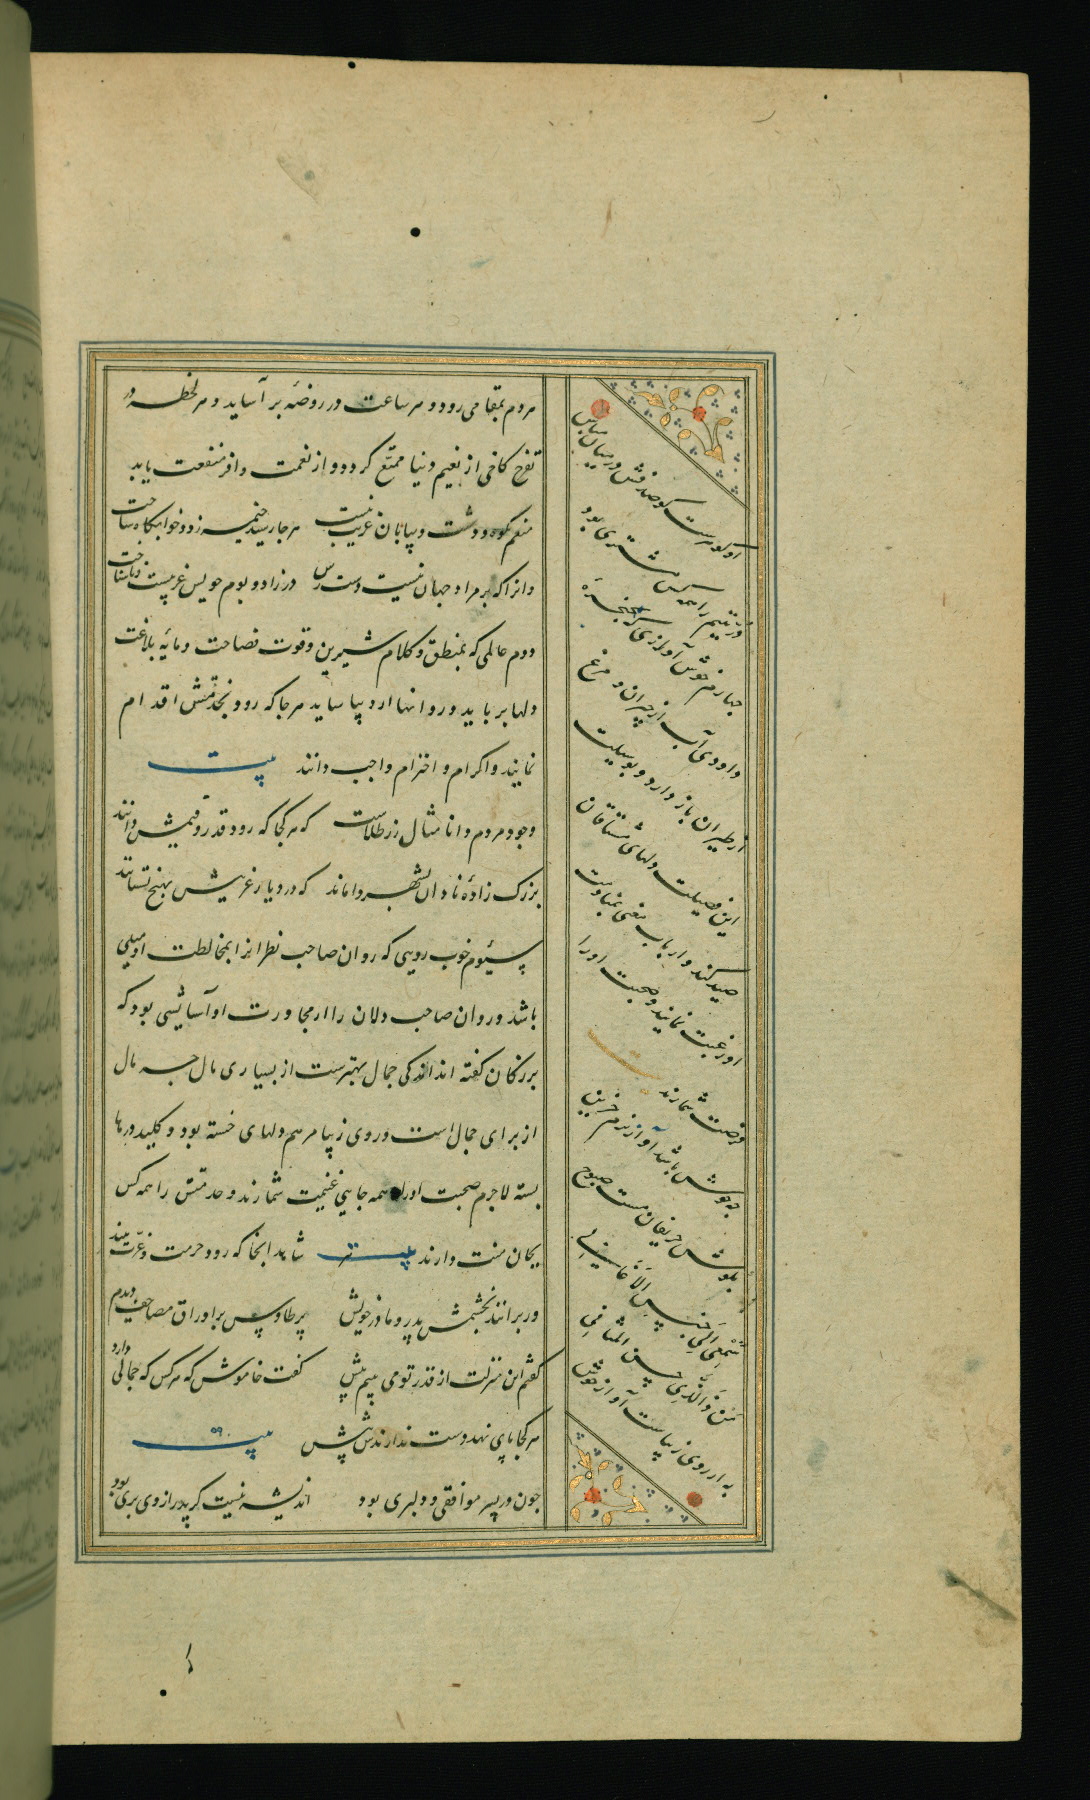 هر دم بمقامی رود و هر ساعت در روضهٔ بر آساید و هر لحظه در
تفرج کاخی از نعیم دنیا ممتع کردد و از نعمت وافر منفعت یابد
منعم بکوه و دشت و بیابان غریب نیست هر جا رسید خیمه زد و خوابکاه ساخت
وانرا که بر مراد جهان نیست دست رس در زاد و بوم خویش غریبست و ناشناخت
دوم عالمی که بمنطق و کلام شیرین و قوت فصاحت و مایهٔ بلاغت
دلها برباید و روانها ارو بیاساید هر جا که رود بخدمتش اقدام
نمایند و اکرام و احترام واجب دانند بیت
وجود مردم دانا مثال زر طلاست که هر کجا که رود قدر و قیمتش دانند
بزرک زادهٔ نادان بشهر وا ماند که در دیار غریبش بهیچ نستانند
سیوم خوب رویی که روان صاحب نظرانرا بمخالطت او میلی
باشد و روان صاحب دلان را از مجاورت او آسایشی بود که
بزرکان کفته اند اندکی جمال بهترست از بسیاری مال چه مال
از برای جمال است و روی زیبا مرهم دلهای خسته بود و کلید درها
بسته لاجرم صحبت اورا همه جایی غنیمت شمارند و خدمتش را همه کس
بجان منت دارند بیت شاهد انجا که رود حرمت و عزت بیند
ور برانند بخشمش پدر و مادر خویش پر طاوس بر اوراق مصاحف دیدم
کفتم این منزلت از قدر تو می بینم بیش کفت خاموش که هر کس که جمالی دارد
هر کجا پای نهد دست ندارندش پیش بیت
چون در پسر موافقی و دلبری بود اندیشه نیست کر پدر از وی بری بود
او کوهرست کو صدفش در میان مباش
در یتیم را همه کس مشتری بود
چهارم خوش آوازی که بحنجرهٔ
داودی آب از جریان و مرغ
از طیران باز دارد و بوسیلت
این فضیلت دلهای مشتاقان
صید کند و ارباب معنی بمنادمت
او رغبت نمایند و صحبت اورا
فرصت شمارند بیت
چه خوش باشد آواز نرم حزین
بکوش حریفان مست صبوح
سمعی الی حسن الاغانی
من ذا الذی جس المثانی
به از روی زیباست آواز خوش